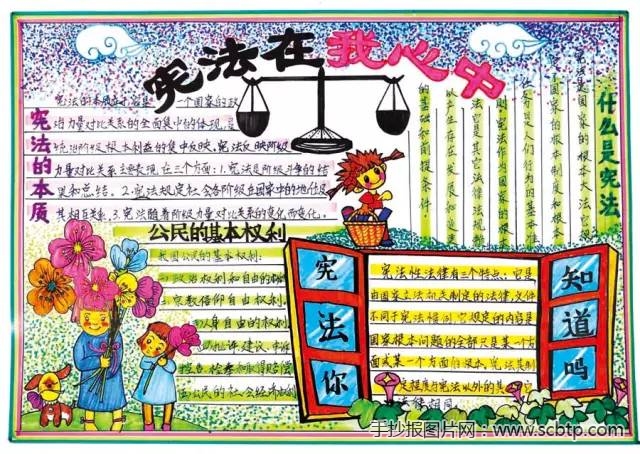 宪法在我心中
宪法的本质
宪法的本质在于,它是一个国家的政
治力量对比关系的全面集中的体现,是
统治阶级根本利益的集中反映,宪法反映阶级
力量对比关系主要表现在三个方面:1.宪法是阶级斗争的结
果和总结。2.宪法规定社会各阶级在国家中的地位及
其相互关系。3.宪法随着阶级力量对比关系的变化而变化。
什么是宪法
宪法是国家的根本大法
国家的根本制度和根本
是人们行为的基本
则宪法作为国家的根
法它是其它法律法规赖
以产生存在发展和变更
的基础和前提条件。
公民的基本权利
我国公民的基本权利:
政治权利和自由的
宗教信仰自由权利.
人身自由的权利
批评建议、申诉
控告、检举和取得赔偿
公民的社会经济
宪法你
知道吗
宪法性法律有三个特点,它是
由国家立法机关制定的法律文件
不同于宪法惯例,它规定的内容是
国家根本问题的全部只是某一个方
面或某一个方面的根本,宪法其制
定程度与宪法以外的其它
法律相同。
手抄报图片网:www.scbtp.com